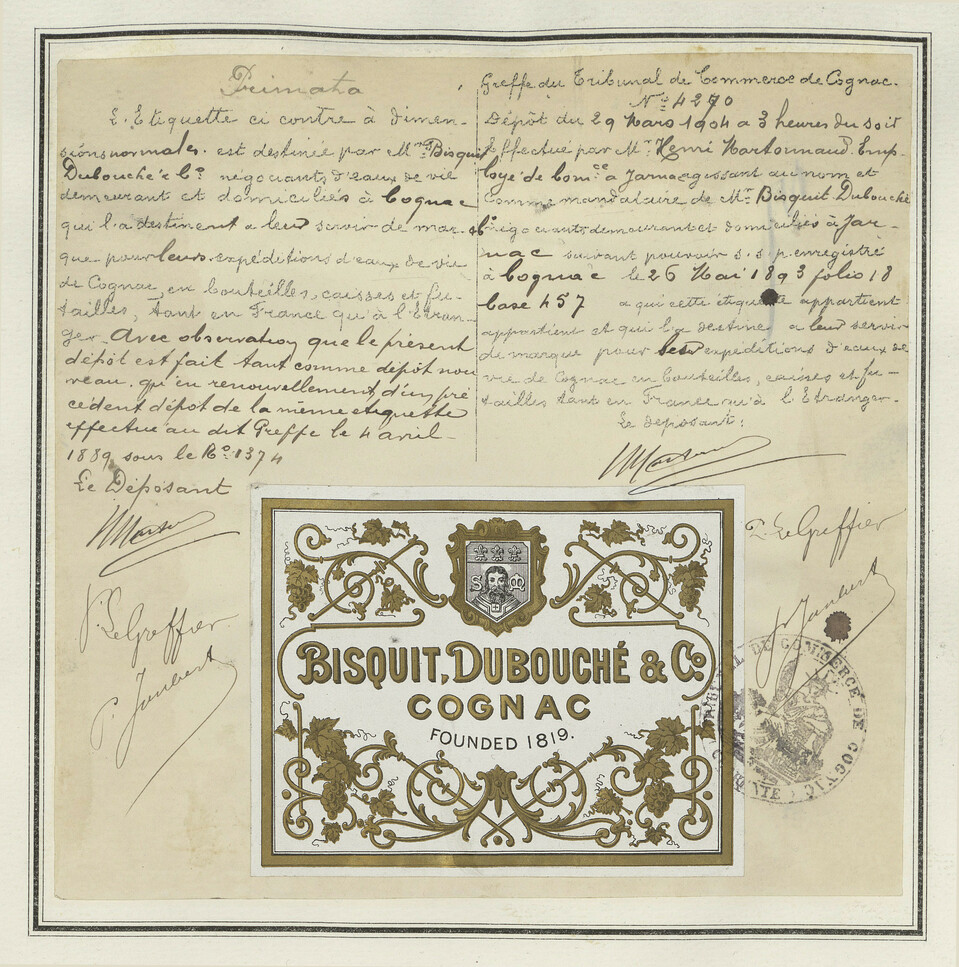 Primata
L'Etiquette ci contre à dimen-
sions normales. est destinée par Mrs Bisquit
Dubouché & Co. négociants d'eaux de vie
demeurant et domiciliés à Cognac
qui l'a destinent a leur servir de mar-
que pour leurs expéditions d'eaux de vie
de Cognac, en bouteilles, caisses et fu-
tailles, tant en France qu'à l'Etran-
ger. Avec observation que le présent
dépôt est fait tant comme dépôt nou
veau. qu'en renouvellement d'un pré
cédent dépôt de la même etiquette
effectué au dit Greffe le 4 avril-
1889 sous le No. 1374
Le Déposant
P. Le Greffier
P. Joubert
Greffe du Tribunal de Commerce de Cognac.
No. 4270
Dépôt du 29 Mars 1904 a 3 heures du soir
Effectué par Mr. Henri Martonnaud. Emp-
loyé de Comce. a Jarnac agissant au nom et
Comme mandataire de Mrs Bisquit Dubouché
& Co négociants demeurant et domiciliés à Jar-
nac suivant pouvoir s. s. p. enregistré
à Cognac le 26 Mai 1893 folio 18
Case 457 a qui cette étiquette appartient
appartient et qui l'a destine a leur servir
de marque pour leur expéditions d'eaux de
vie de Cognac en bouteilles, caisses et fu-
tailles tant en France qu'à l'Etranger.
Le deposant:
P. Le Greffier
Joubert
S M
BISQUIT, DUBOUCHÉ & Co.
COGNAC
FOUNDED 1819.
DE COMMERCE DE COGNAC